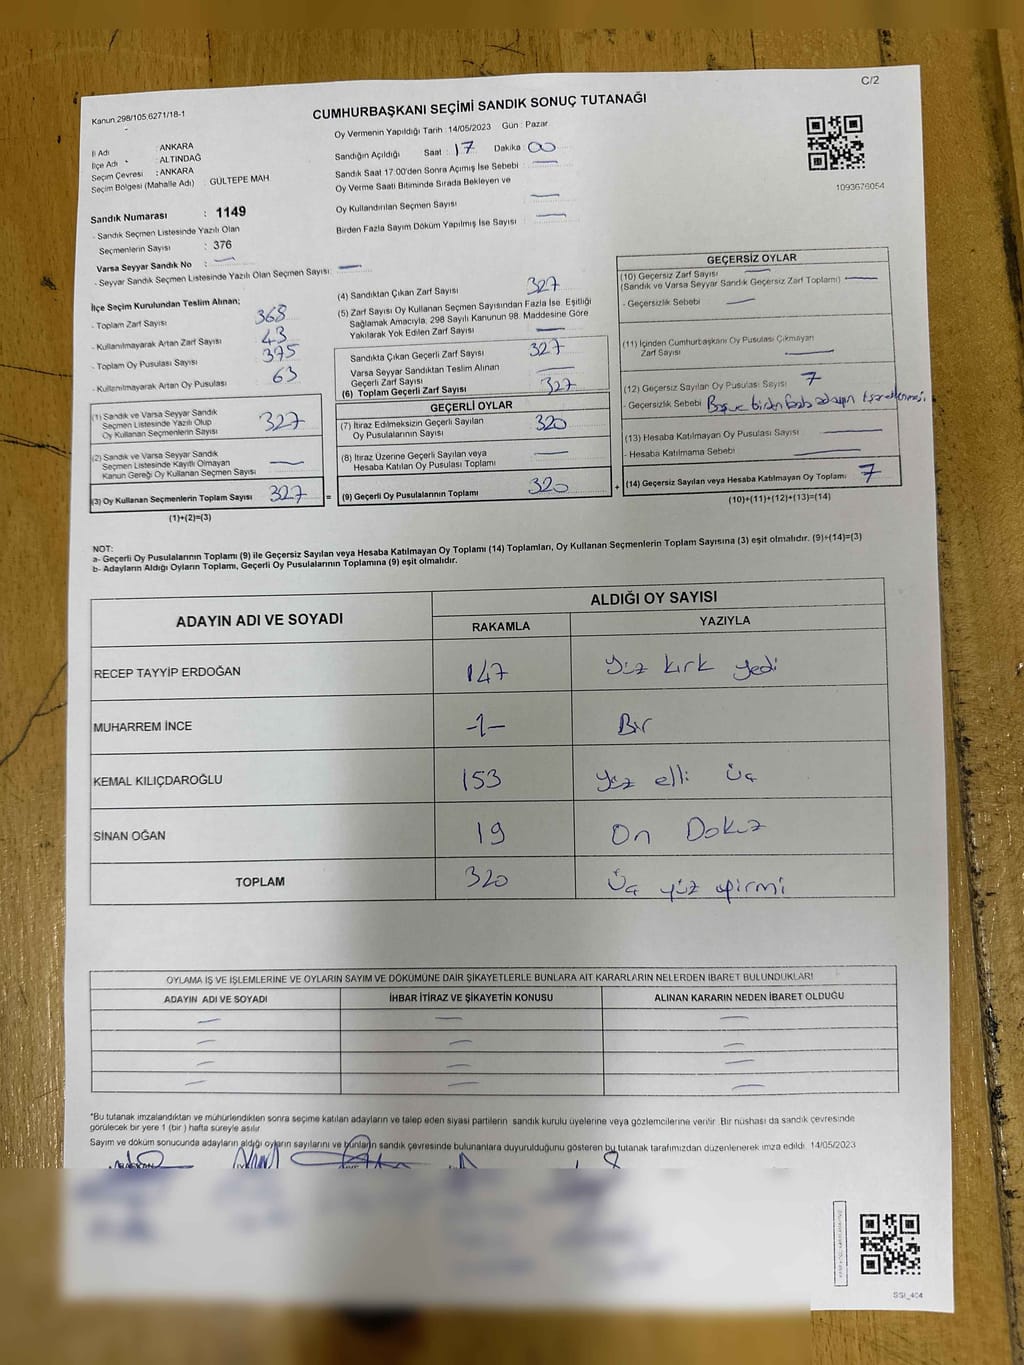 C/2
Kanun 298/105.6271/18-1
CUMHURBAŞKANI SEÇİMİ SANDIK SONUÇ TUTANAĞI
Oy Vermenin Yapıldığı Tarih : 14/05/2023 Gün : Pazar
İl Adı : ANKARA
İlçe Adı : ALTINDAĞ
Seçim Çevresi : ANKARA
Seçim Bölgesi (Mahalle Adı) : GÜLTEPE MAH.
Sandığın Açıldığı Saat : 17 Dakika : 00
Sandık Saat 17:00'den Sonra Açımış İse Sebebi : —
Oy Verme Saati Bitiminde Sırada Bekleyen ve
Oy Kullandırılan Seçmen Sayısı —
Birden Fazla Sayım Döküm Yapılmış İse Sayısı : —
1093676054
Sandık Numarası : 1149
- Sandık Seçmen Listesinde Yazılı Olan
Seçmenlerin Sayısı : 376
Varsa Seyyar Sandık No : —
- Seyyar Sandık Seçmen Listesinde Yazılı Olan Seçmen Sayısı: —
İlçe Seçim Kurulundan Teslim Alınan;
- Toplam Zarf Sayısı 368
- Kullanılmayarak Artan Zarf Sayısı 43
- Toplam Oy Pusulası Sayısı 395
- Kullanılmayarak Artan Oy Pusulası 63
(1) Sandık ve Varsa Seyyar Sandık
Seçmen Listesinde Yazılı Olup
Oy Kullanan Seçmenlerin Sayısı 327
(2) Sandık ve Varsa Seyyar Sandık
Seçmen Listesinde Kayıtlı Olmayan
Kanun Gereği Oy Kullanan Seçmen Sayısı —
(3) Oy Kullanan Seçmenlerin Toplam Sayısı 327 =
(1)+(2)=(3)
(4) Sandıktan Çıkan Zarf Sayısı 327
(5) Zarf Sayısı Oy Kullanan Seçmen Sayısından Fazla İse, Eşitliği
Sağlamak Amacıyla, 298 Sayılı Kanunun 98. Maddesine Göre
Yakılarak Yok Edilen Zarf Sayısı —
Sandıkta Çıkan Geçerli Zarf Sayısı 327
Varsa Seyyar Sandıktan Teslim Alınan
Geçerli Zarf Sayısı —
(6) Toplam Geçerli Zarf Sayısı 327
GEÇERLİ OYLAR
(7) İtiraz Edilmeksizin Geçerli Sayılan
Oy Pusulalarının Sayısı 320
(8) İtiraz Üzerine Geçerli Sayılan veya
Hesaba Katılan Oy Pusulası Toplamı —
(9) Geçerli Oy Pusulalarının Toplamı 320 +
GEÇERSİZ OYLAR
(10) Geçersiz Zarf Sayısı —
(Sandık ve Varsa Seyyar Sandık Geçersiz Zarf Toplamı) —
- Geçersizlik Sebebi —
(11) İçinden Cumhurbaşkanı Oy Pusulası Çıkmayan
Zarf Sayısı —
(12) Geçersiz Sayılan Oy Pusulası Sayısı 7
- Geçersizlik Sebebi Boş ve birden fazla adayın işaretlenmesi
(13) Hesaba Katılmayan Oy Pusulası Sayısı —
- Hesaba Katılmama Sebebi —
(14) Geçersiz Sayılan veya Hesaba Katılmayan Oy Toplamı 7
(10)+(11)+(12)+(13)=(14)
NOT:
a- Geçerli Oy Pusulalarının Toplamı (9) ile Geçersiz Sayılan veya Hesaba Katılmayan Oy Toplamı (14) Toplamları, Oy Kullanan Seçmenlerin Toplam Sayısına (3) eşit olmalıdır. (9)+(14)=(3)
b- Adayların Aldığı Oyların Toplamı, Geçerli Oy Pusulalarının Toplamına (9) eşit olmalıdır.
ADAYIN ADI VE SOYADI ALDIĞI OY SAYISI
RAKAMLA YAZIYLA
RECEP TAYYİP ERDOĞAN 147 Yüz kırk yedi
MUHARREM İNCE -1- Bir
KEMAL KILIÇDAROĞLU 153 Yüz elli üç
SİNAN OĞAN 19 On Dokuz
TOPLAM 320 Üç yüz yirmi
OYLAMA İŞ VE İŞLEMLERİNE VE OYLARIN SAYIM VE DÖKÜMÜNE DAİR ŞİKAYETLERLE BUNLARA AİT KARARLARIN NELERDEN İBARET BULUNDUKLARI
ADAYIN ADI VE SOYADI İHBAR İTİRAZ VE ŞİKAYETİN KONUSU ALINAN KARARIN NEDEN İBARET OLDUĞU
— — —
— — —
— — —
— — —
*Bu tutanak imzalandıktan ve mühürlendikten sonra seçime katılan adayların ve talep eden siyasi partilerin sandık kurulu üyelerine veya gözlemcilerine verilir. Bir nüshası da sandık çevresinde
görülecek bir yere 1 (bir) hafta süreyle asılır.
Sayım ve döküm sonucunda adayların aldığı oyların sayılarını ve bunların sandık çevresinde bulunanlara duyurulduğunu gösteren bu tutanak tarafımızdan düzenlenerek imza edildi. 14/05/2023
SSI_404